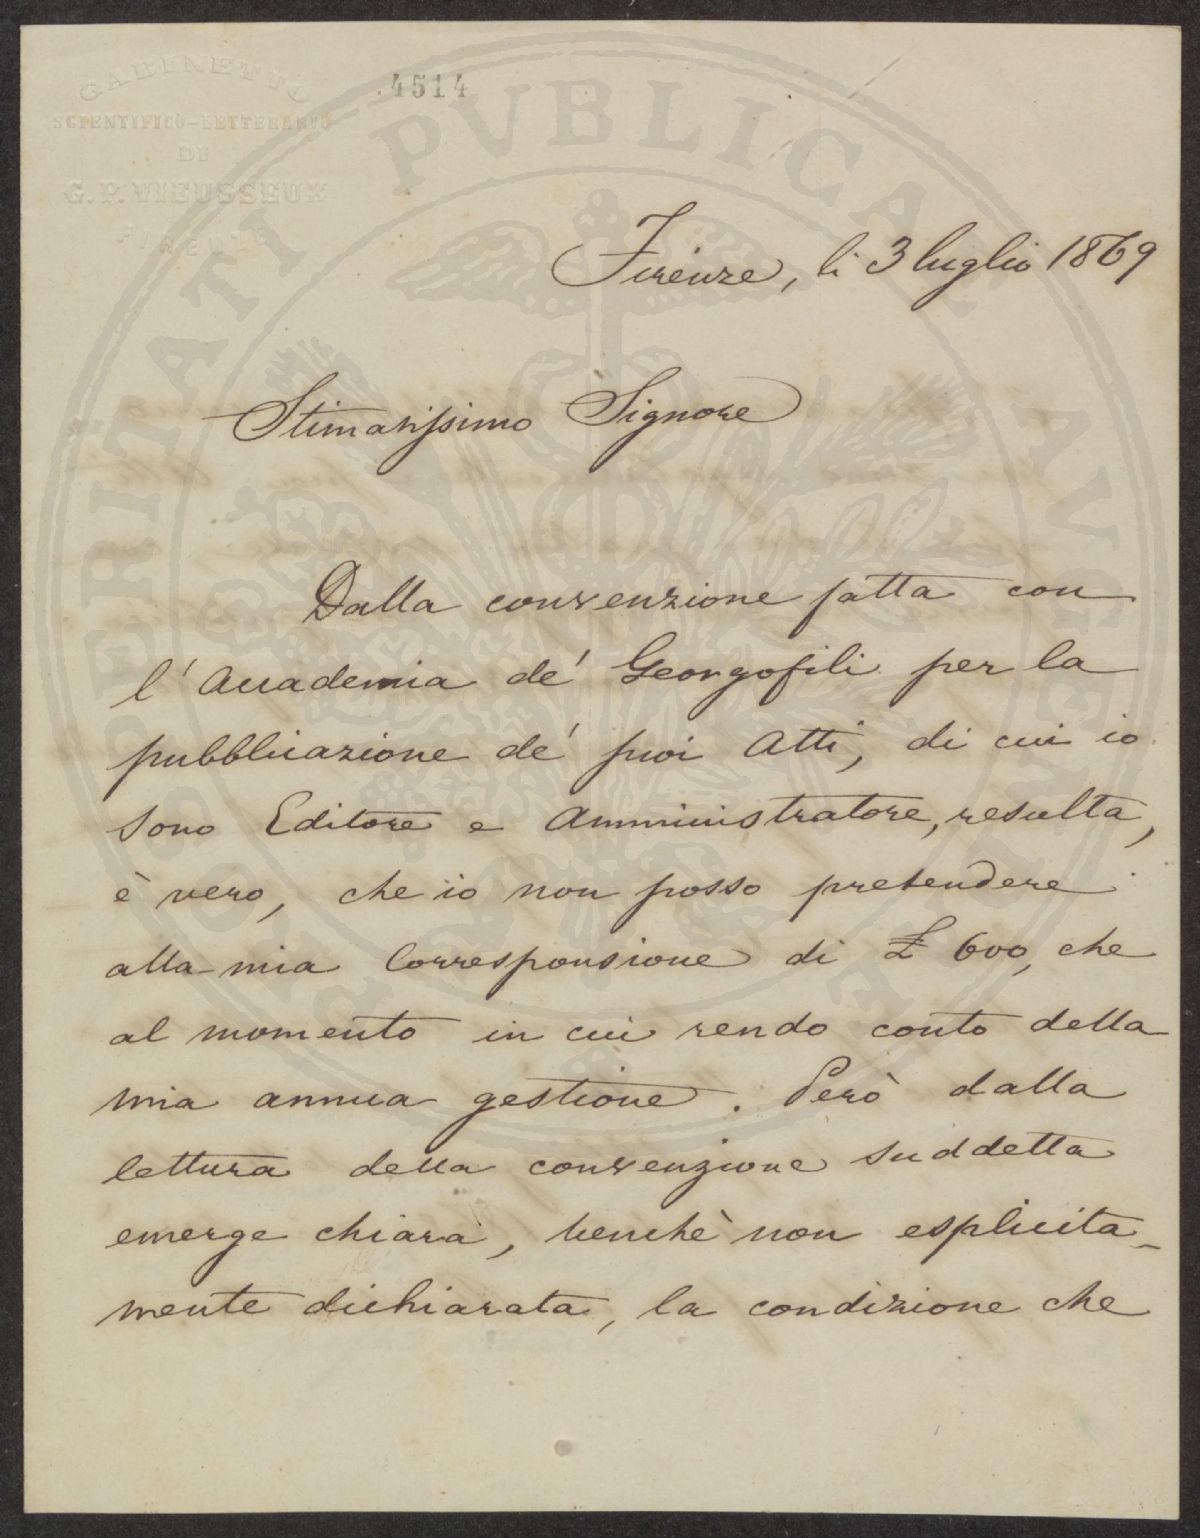 GABINETTO
SCIENTIFICO-LETTERARIO
DI
G. P. VIEUSSEUX
FIRENZE
4514
PVBLICAE
PROSPERITATI
AVGENDAE
Firenze, li 3 luglio 1869
Stimatissimo Signore
Dalla convenzione fatta con
l'Accademia de' Georgofili per la
pubblicazione de' suoi Atti, di cui io
sono Editore e Amministratore, resulta,
è vero, che io non posso pretendere
alla mia Corresponsione di £ 600, che
al momento in cui rendo conto della
mia annua gestione. Però dalla
lettura della convenzione suddetta
emerge chiara, benchè non esplicita-
mente dichiarata, la condizione che